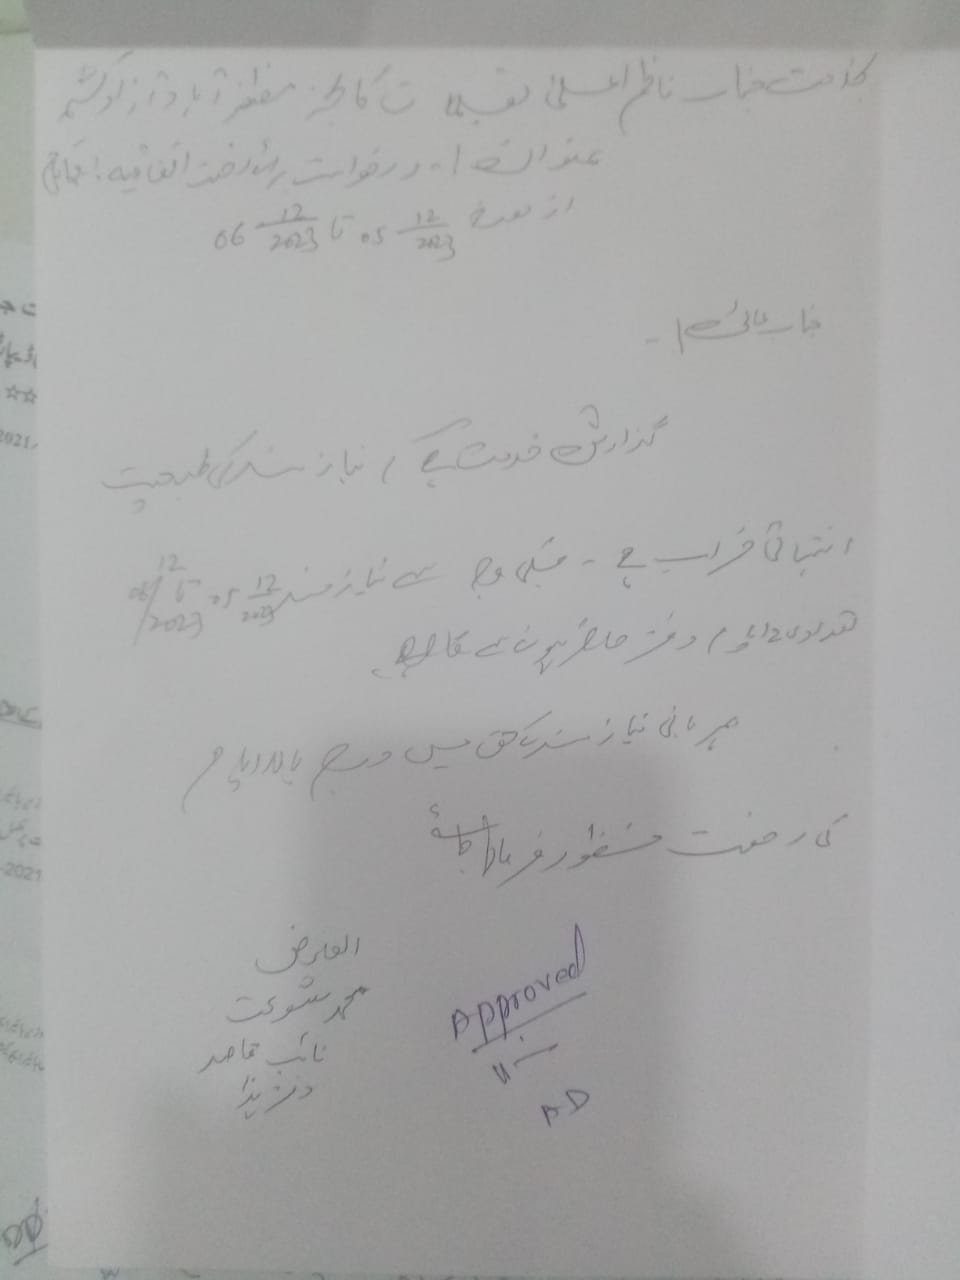 بخدمت جناب ناظم اعلیٰ تعلیمات کالجز مظفرآباد آزاد کشمیر
عنوان :- درخواست برائے رخصت اتفاقیہ
از مورخہ 05 12/2023 تا 06 12/2023
جناب عالی :-
گزارش خدمت ہے کہ نیاز مند کی طبیعت
انتہائی خراب ہے - جسکی وجہ سے نیاز مند 05 12/2023 تا 06 12/2023
دفتر حاضر ہونے سے قاصر ہے
مہربانی نیاز مند کے حق میں درج بالا ایام
کی رخصت منظور فرمائی جائے
العارض
محمد شوکت
نائب قاصد
دفتر ہذا
Approved
AD
2021
2021